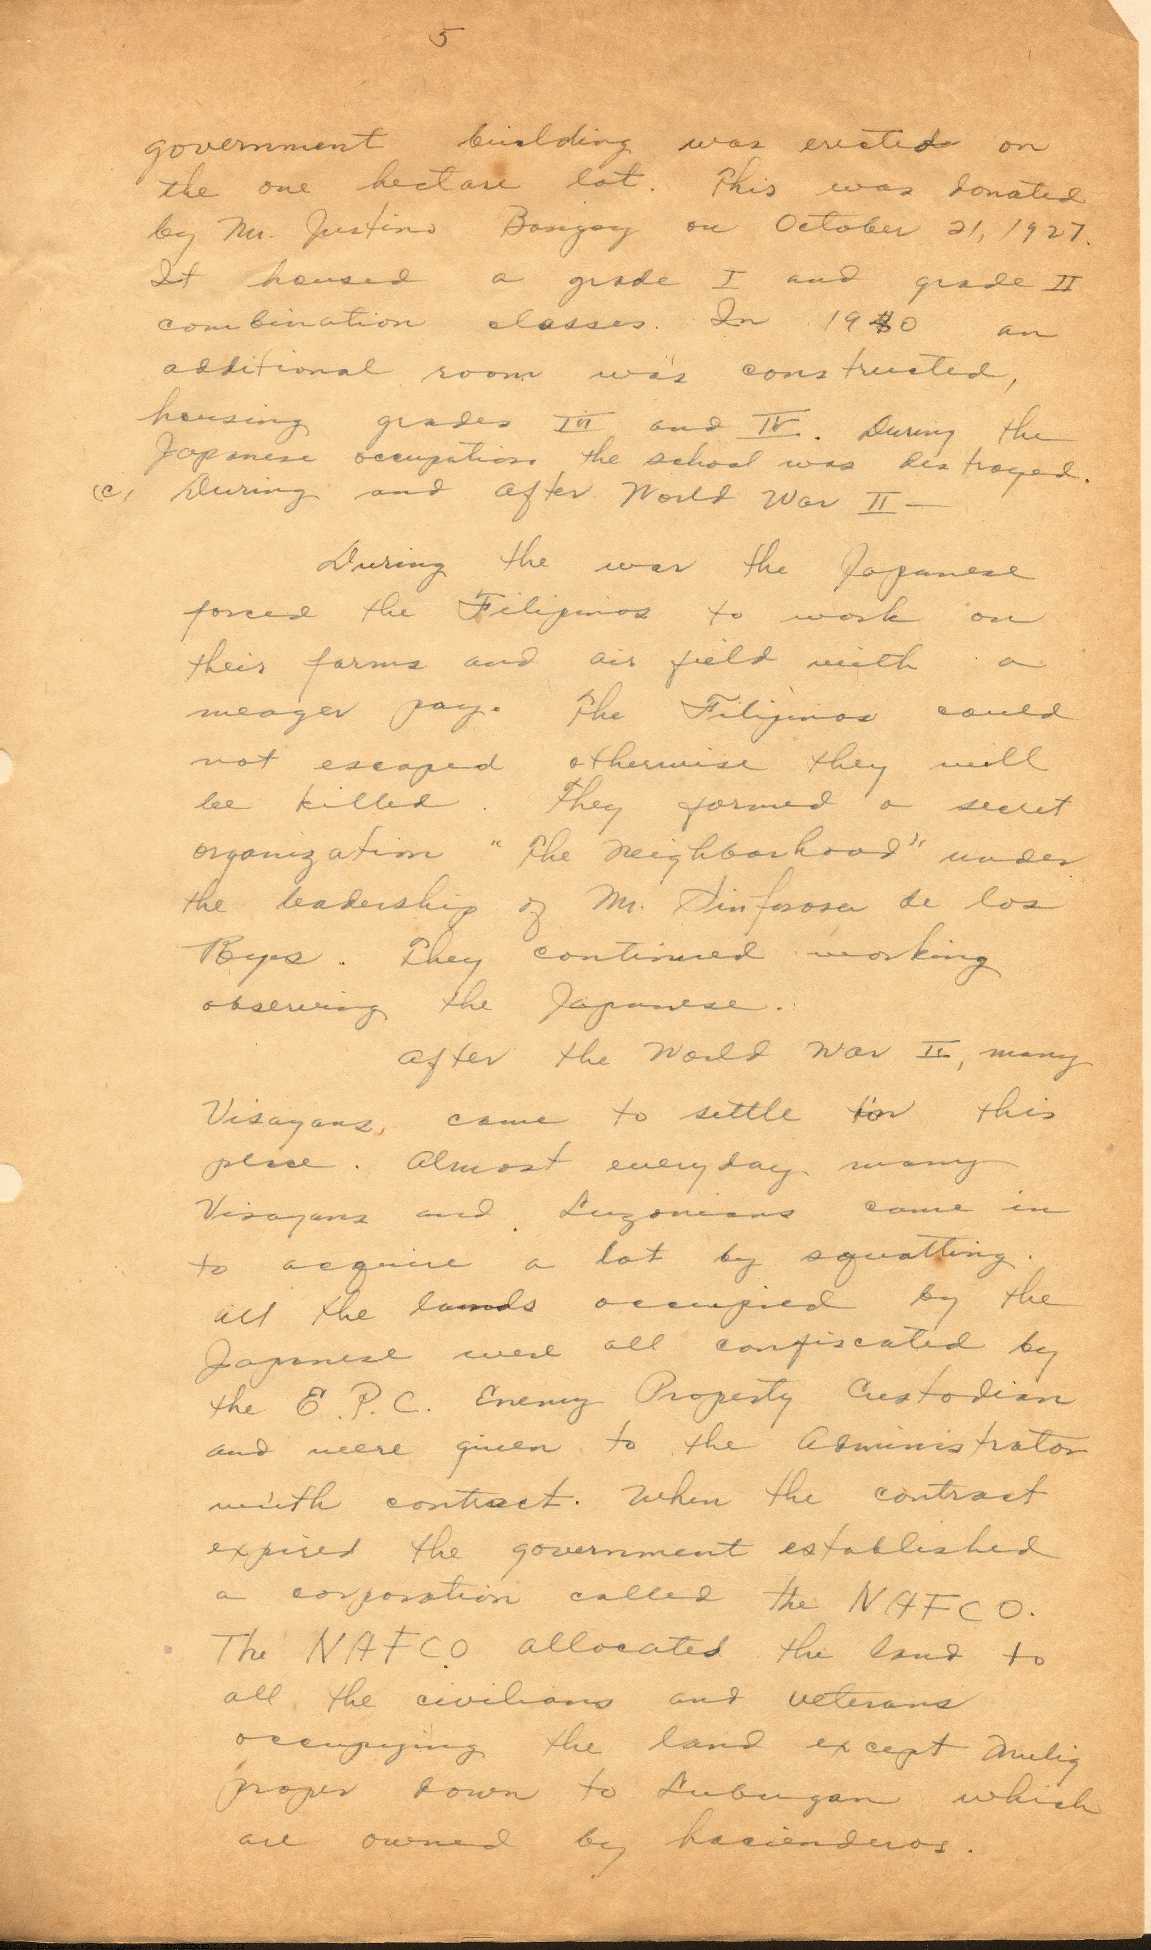 5
government building was erected on
the one hectare lot. This was donated
by Mr. Justino Bangoy on October 21, 1927.
It housed a grade I and grade II
combination classes. In 1930 an
additional room was constructed,
housing grades III and IV. During the
Japanese occupation the school was destroyed.
(c, During and after World War II —
During the war the Japanese
forced the Filipinos to work on
their farms and air field with a
meager pay. The Filipinos could
not escaped otherwise they will
be killed. They formed a secret
organization "The Neighborhood" under
the leadership of Mr. Sinforosa de los
Reyes. They continued working
observing the Japanese.
After the World War II, many
Visayans, came to settle in this
place. Almost everyday many
Visayans and Luzonians came in
to acquire a lot by squatting.
All the lands occupied by the
Japanese were all confiscated by
the E.P.C. Enemy Property Custodian
and were given to the Administrator
with contract. When the contract
expired the government established
a corporation called the NAFCO.
The NAFCO allocated the land to
all the civilians and veterans
occupying the land except Mulig
proper down to Lubugan which
are owned by hacienderos.